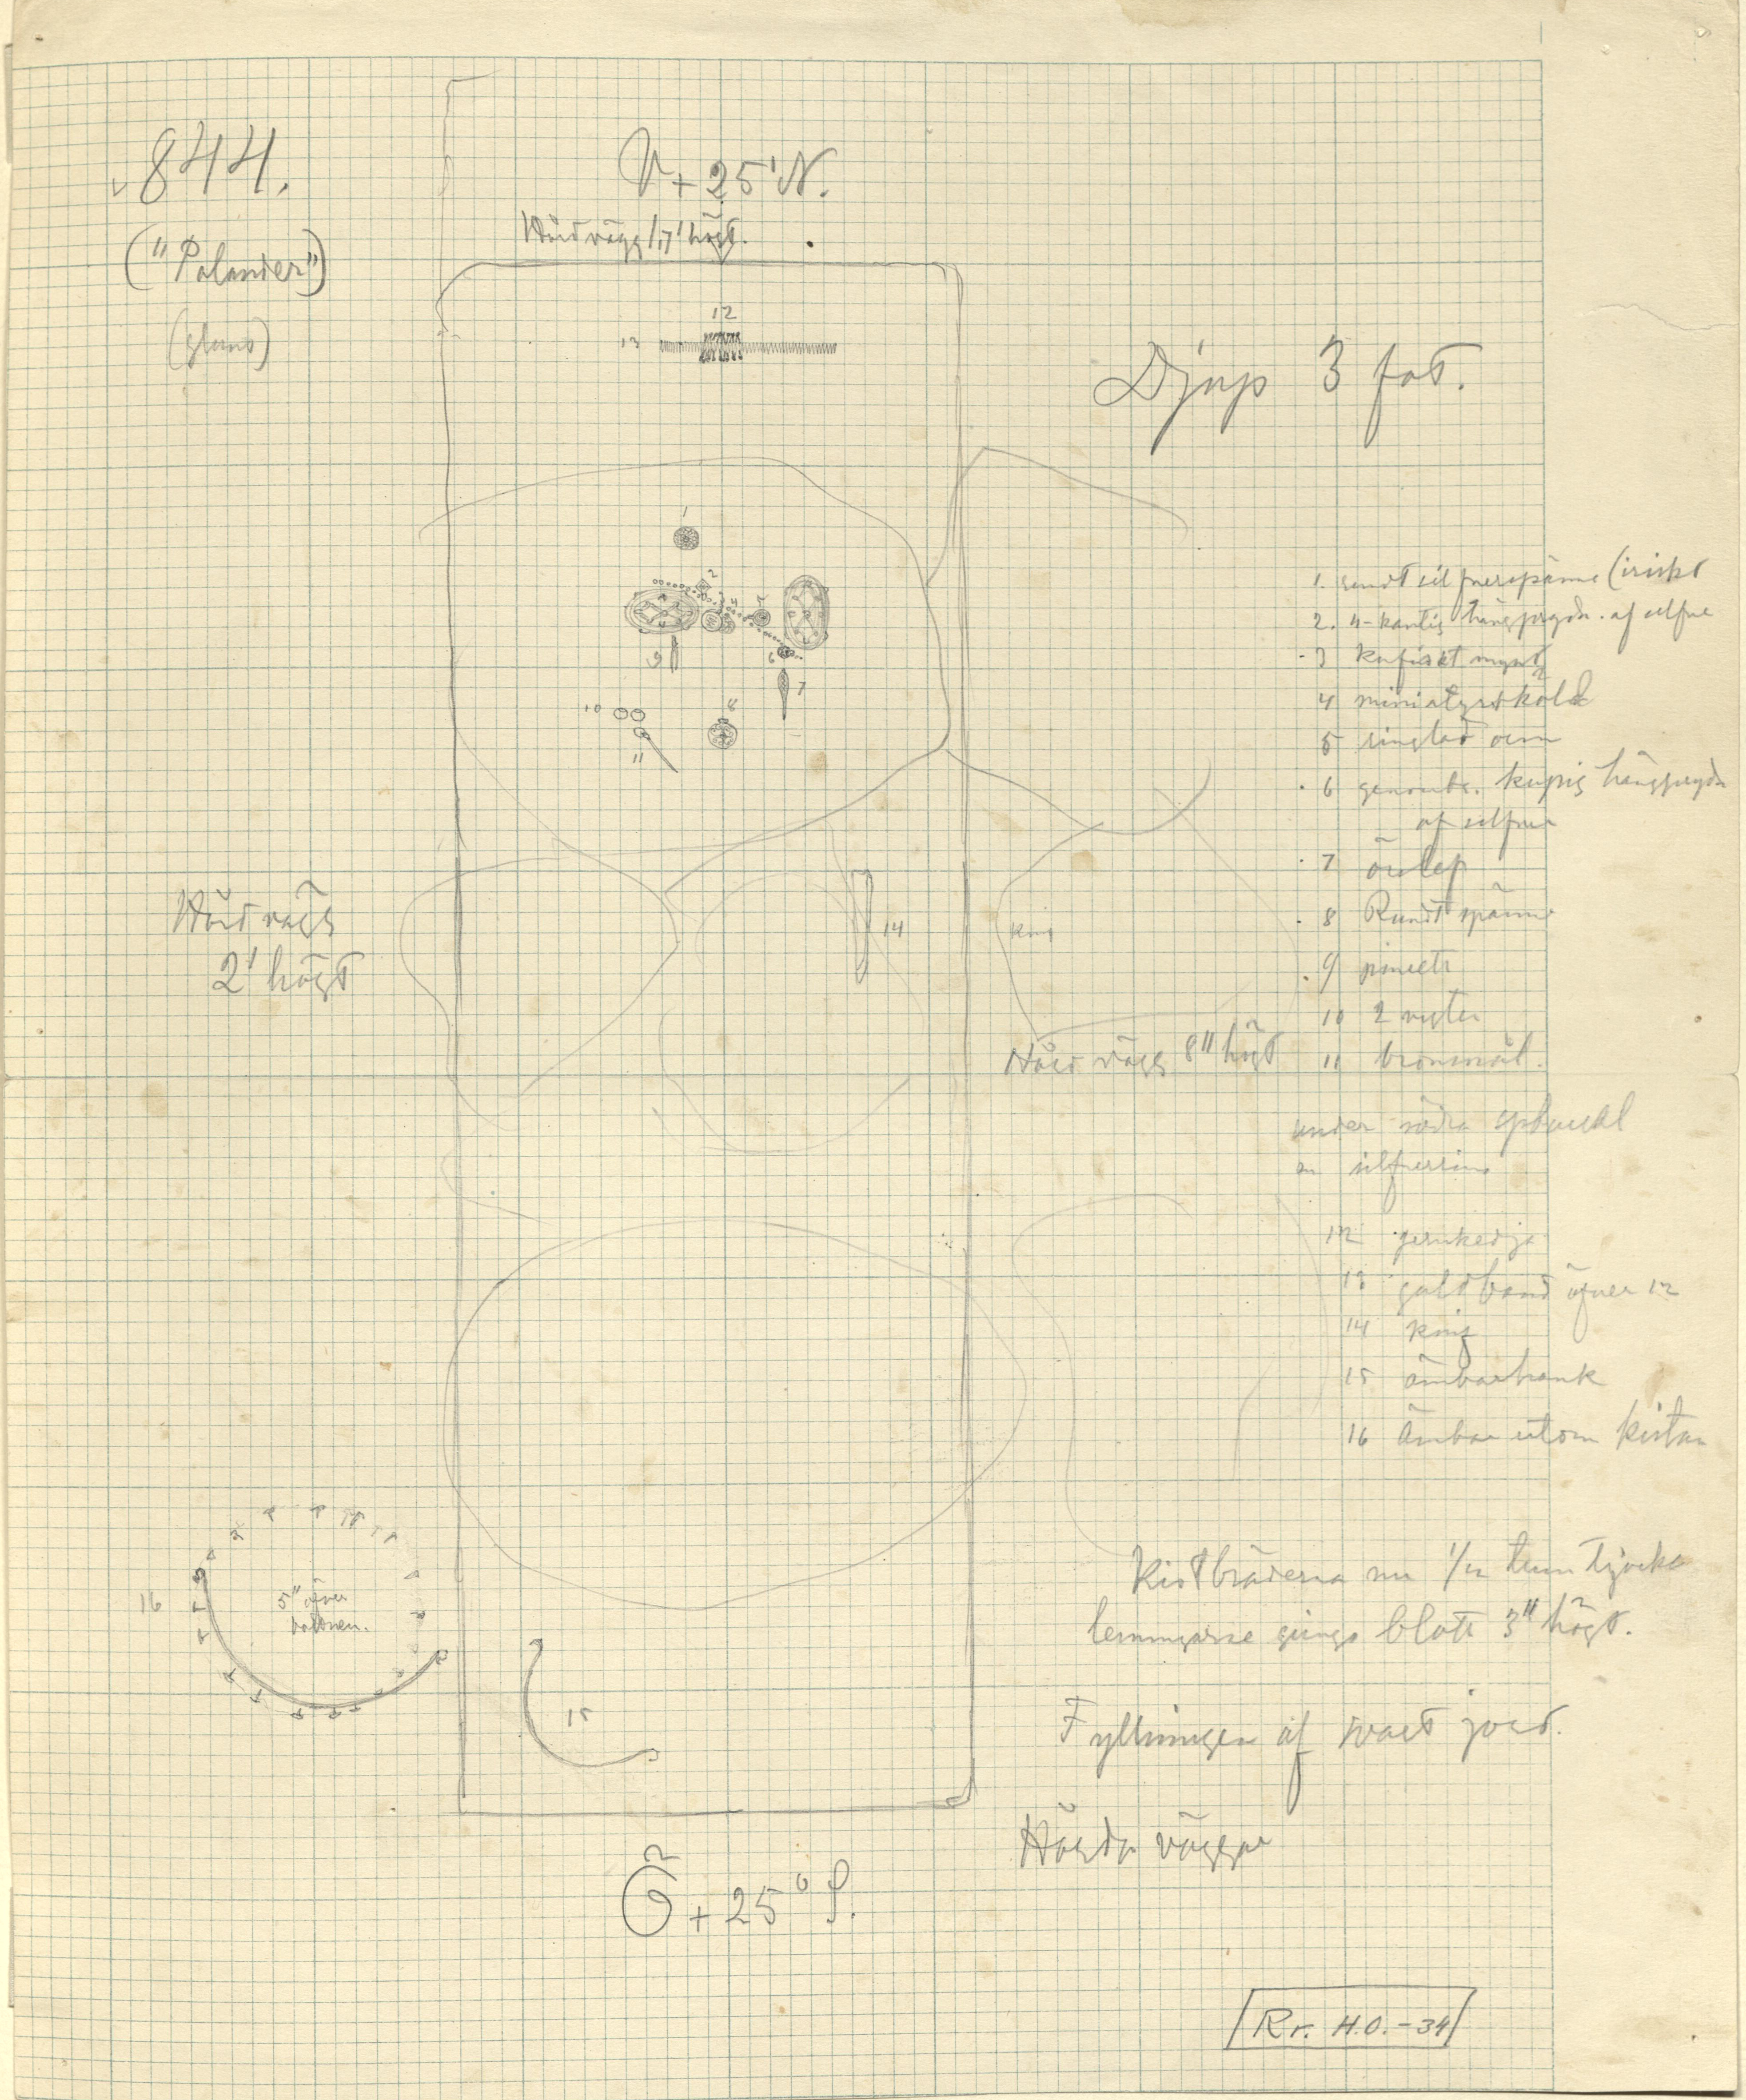 844.
("Palander")
V + 25° N.
Hård vägg 1,7' högt.
12
13
Djup 3 fot.
1
2
3
4
5
6
7
8
9
10
11
14
1. rundt silfverspänne (iriskt
2. 4-kantig hängprydn. af silfver
3 kufiskt mynt
4 miniatyrsköld
5 ringlad orm
6 genombr. kupig hängprydn
af silfver
7 örslef
8 Rundt spänne
9 pincett
10 2 nysten
11 bronsnål.
under södra spbuckl
en silfverring
12 jernkedja
13 guldband öfver 12
14 knif
15 ämbarhank
16 Ämbar utom kistan
Hård vägg
2' högt
knif
Hård vägg 8" högt
16
5" över
bottnen.
15
Kistbräderna nu 1/2 tum tjocka
lemningarne gingo blott 3" högt.
Fyllningen af svart jord.
Hårda väggar
Ö + 25° S.
Rr. H.O. -34